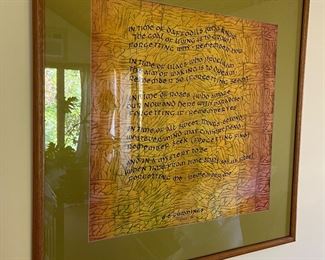 IN TIME OF DAFFODILS (WHO KNOW
THE GOAL OF LIVING IS TO GROW)
FORGETTING WHY, REMEMBER HOW
IN TIME OF LILACS WHO PROCLAIM
THE AIM OF WAKING IS TO DREAM,
REMEMBER SO (FORGETTING SEEM)
IN TIME OF ROSES (WHO AMAZE
OUR NOW AND HERE WITH PARADISE)
FORGETTING IF, REMEMBER YES
IN TIME OF ALL SWEET THINGS BEYOND
WHATEVER MIND MAY COMPREHEND,
REMEMBER SEEK (FORGETTING FIND)
AND IN A MYSTERY TO BE
(WHEN TIME FROM TIME SHALL SET US FREE)
FORGETTING ME, REMEMBER ME
E E CUMMINGS